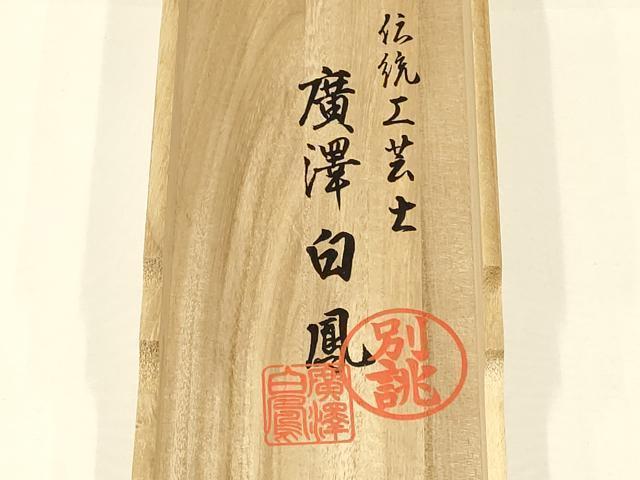 伝統工芸士
廣澤白鳳
別誂
廣澤
白鳳